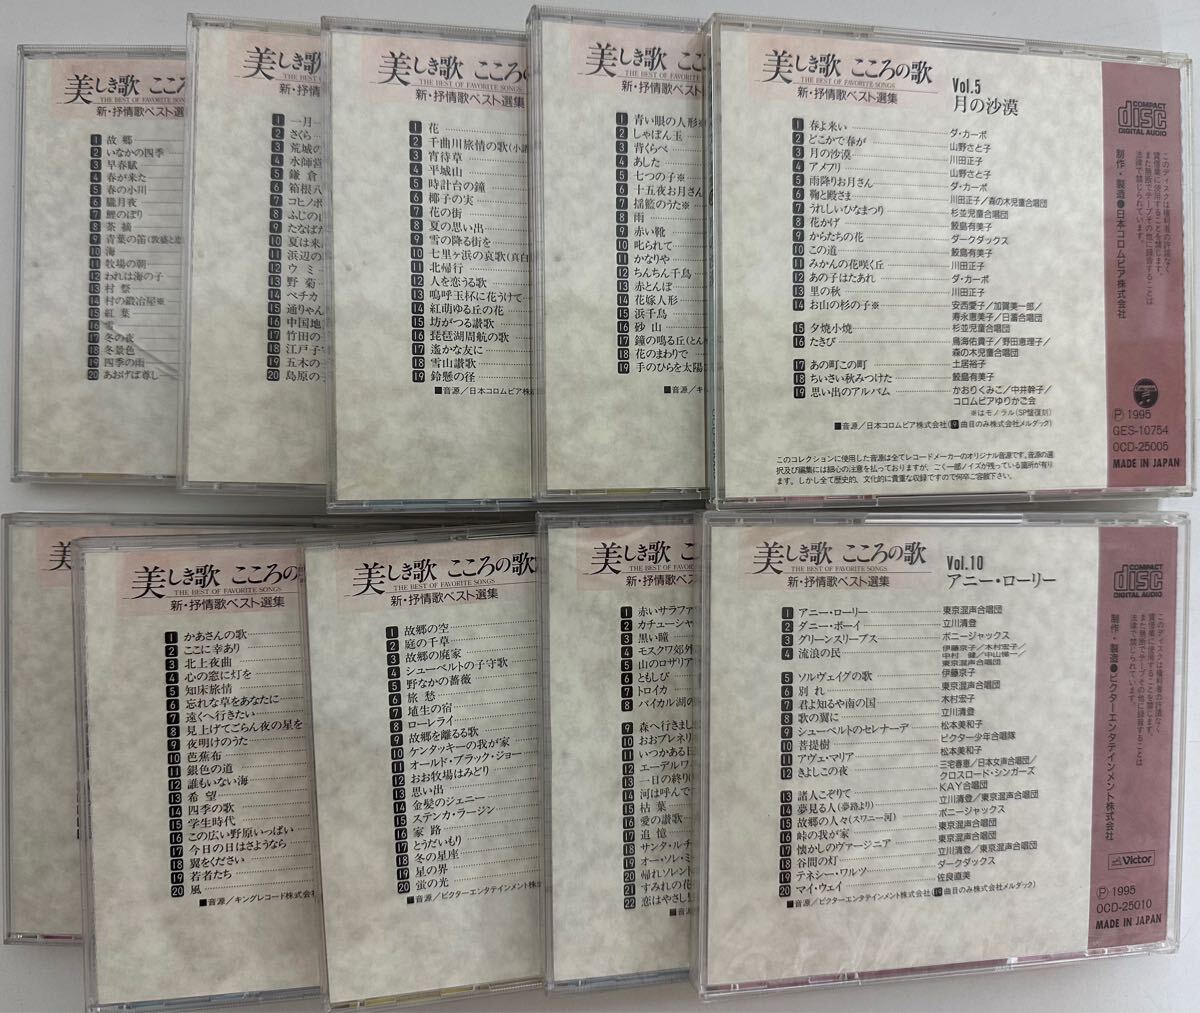 美しき歌
THE BEST OF FAVORITE SONGS
新・抒情歌ベスト選集
1 故郷
2 いなかの四季
3 早春賦
4 春が来た
5 春の小川
6 朧月夜
7 鯉のぼり
8 茶摘
9 青葉の笛
10 海
11 牧場の朝
12 われは海の子
13 村祭
14 村の鍛冶屋※
15 紅葉
16 雪
17 冬の夜
18 冬景色
19 四季の雨
20 あおげば尊し
美しき歌
THE BEST OF
新・抒情
1 一月一
2 さくら
3 荒城の
4 水師営
5 鎌倉
6 箱根八
7 コヒノボ
8 ふじの山
9 たなばた
10 夏は来ぬ
11 浜辺の
12 ウミ
13 野菊
14 ペチカ
15 通りゃん
16 中国地
17 竹田の
18 江戸子
19 五木の
20 島原の子
美しき歌 こころの
THE BEST OF FAVORITE SONGS
新・抒情歌ベスト選集
1 花
2 千曲川旅情の歌(小諸
3 宵待草
4 平城山
5 時計台の鐘
6 椰子の実
7 花の街
8 夏の思い出
9 雪の降る街を
10 七里ヶ浜の哀歌(真白
11 北帰行
12 人を恋うる歌
13 嗚呼玉杯に花うけて
14 紅萌ゆる丘の花
15 坊がつる讃歌
16 琵琶湖周航の歌
17 遙かな友に
18 雪山讃歌
19 鈴懸の径
■音源／日本コロムビア株
美しき歌 こ
THE BEST OF FAVORITE
新・抒情歌ベスト
1 青い眼の人形※
2 しゃぼん玉
3 背くらべ
4 あした
5 七つの子※
6 十五夜お月さん
7 揺籃のうた※
8 雨
9 赤い靴
10 叱られて
11 かなりや
12 ちんちん千鳥
13 赤とんぼ
14 花嫁人形
15 浜千鳥
16 砂山
17 鐘の鳴る丘(とん
18 花のまわりで
19 手のひらを太陽に
■音源／キ
美しき歌 こころの歌
THE BEST OF FAVORITE SONGS
新・抒情歌ベスト選集
Vol.5
月の沙漠
1 春よ来い ダ・カーポ
2 どこかで春が 山野さと子
3 月の沙漠 川田正子
4 アメフリ 山野さと子
5 雨降りお月さん ダ・カーポ
6 鞠と殿さま 川田正子／森の木児童合唱団
7 うれしいひなまつり 杉並児童合唱団
8 花かげ 鮫島有美子
9 からたちの花 ダークダックス
10 この道 鮫島有美子
11 みかんの花咲く丘 川田正子
12 あの子はたあれ ダ・カーポ
13 里の秋 川田正子
14 お山の杉の子※ 安西愛子／加賀美一郎／
寿永恵美子／日蓄合唱団
15 夕焼小焼 杉並児童合唱団
16 たきび 鳥海佑貴子／野田恵理子／
森の木児童合唱団
17 あの町この町 土居裕子
18 ちいさい秋みつけた 鮫島有美子
19 思い出のアルバム かおりくみこ／中井幹子／
コロムビアゆりかご会
※はモノラル(SP盤復刻)
■音源／日本コロムビア株式会社(19曲目のみ株式会社メルダック)
このコレクションに使用した音源は全てレコードメーカーのオリジナル音源です。音源の選
択及び編集には細心の注意を払っておりますが、ごく一部ノイズが残っている箇所が有り
ます。しかし全て歴史的、文化的に貴重な収録ですので何卒ご容赦下さい。
COMPACT
disc
DIGITAL AUDIO
このディスクは権利者の許諾なく
賃借業に使用することを禁じます。
また無断でテープその他に録音することは
法律で禁じられています。
制作・製造●日本コロムビア株式会社
Ⓟ 1995
GES-10754
OCD-25005
MADE IN JAPAN
美
美しき歌 こころの
THE BEST OF FAVORITE SONGS
新・抒情歌ベスト選集
1 かあさんの歌
2 ここに幸あり
3 北上夜曲
4 心の窓に灯を
5 知床旅情
6 忘れな草をあなたに
7 遠くへ行きたい
8 見上げてごらん夜の星を
9 夜明けのうた
10 芭蕉布
11 銀色の道
12 誰もいない海
13 希望
14 四季の歌
15 学生時代
16 この広い野原いっぱい
17 今日の日はさようなら
18 翼をください
19 若者たち
20 風
■音源／キングレコード株式会社
美しき歌 こころの歌
THE BEST OF FAVORITE SONGS
新・抒情歌ベスト選集
1 故郷の空
2 庭の千草
3 故郷の廃家
4 シューベルトの子守歌
5 野なかの薔薇
6 旅愁
7 埴生の宿
8 ローレライ
9 故郷を離るる歌
10 ケンタッキーの我が家
11 オールド・ブラック・ジョー
12 おお牧場はみどり
13 思い出
14 金髪のジェニー
15 ステンカ・ラージン
16 家路
17 とうだいもり
18 冬の星座
19 星の界
20 蛍の光
■音源／ビクターエンタテインメント株
美しき歌 こ
THE BEST OF FAVORITE
新・抒情歌ベスト
1 赤いサラファ
2 カチューシャ
3 黒い瞳
4 モスクワ郊外
5 山のロザリア
6 ともしび
7 トロイカ
8 バイカル湖の
9 森へ行きまし
10 おおブレネリ
11 いつかある日
12 エーデルワ
13 一日の終り
14 河は呼んで
15 枯葉
16 愛の讃歌
17 追憶
18 サンタ・ルチ
19 オー・ソレ・ミ
20 帰れソレント
21 すみれの花
22 恋はやさし
■音源
美しき歌 こころの歌
THE BEST OF FAVORITE SONGS
新・抒情歌ベスト選集
Vol.10
アニー・ローリー
1 アニー・ローリー 東京混声合唱団
2 ダニー・ボーイ 立川清登
3 グリーンスリーブス ボニージャックス
4 流浪の民 伊藤京子／木村宏子／
中村 健／中山悌一／
東京混声合唱団
5 ソルヴェイグの歌 伊藤京子
6 別れ 東京混声合唱団
7 君よ知るや南の国 木村宏子
8 歌の翼に 立川清登
9 シューベルトのセレナーデ 松本美和子
10 菩提樹 ビクター少年合唱隊
11 アヴェ・マリア 松本美和子
12 きよしこの夜 三宅春恵／日本女声合唱団／
クロスロード・シンガーズ
KAY合唱団
13 諸人こぞりて 立川清登／東京混声合唱団
14 夢見る人(夢路より) ボニージャックス
15 故郷の人々(スワニー河) 東京混声合唱団
16 峠の我が家 東京混声合唱団
17 懐かしのヴァージニア 立川清登／東京混声合唱団
18 谷間の灯 ダークダックス
19 テネシー・ワルツ 佐良直美
20 マイ・ウェイ
■音源／ビクターエンタテインメント株式会社(19曲目のみ株式会社メルダック)
COMPACT
disc
DIGITAL AUDIO
このディスクは権利者の許諾なく
賃借業に使用することを禁じます。
また無断でテープその他に録音することは
法律で禁じられています。
制作・製造●ビクターエンタテインメント株式会社
Victor
Ⓟ 1995
OCD-25010
MADE IN JAPAN